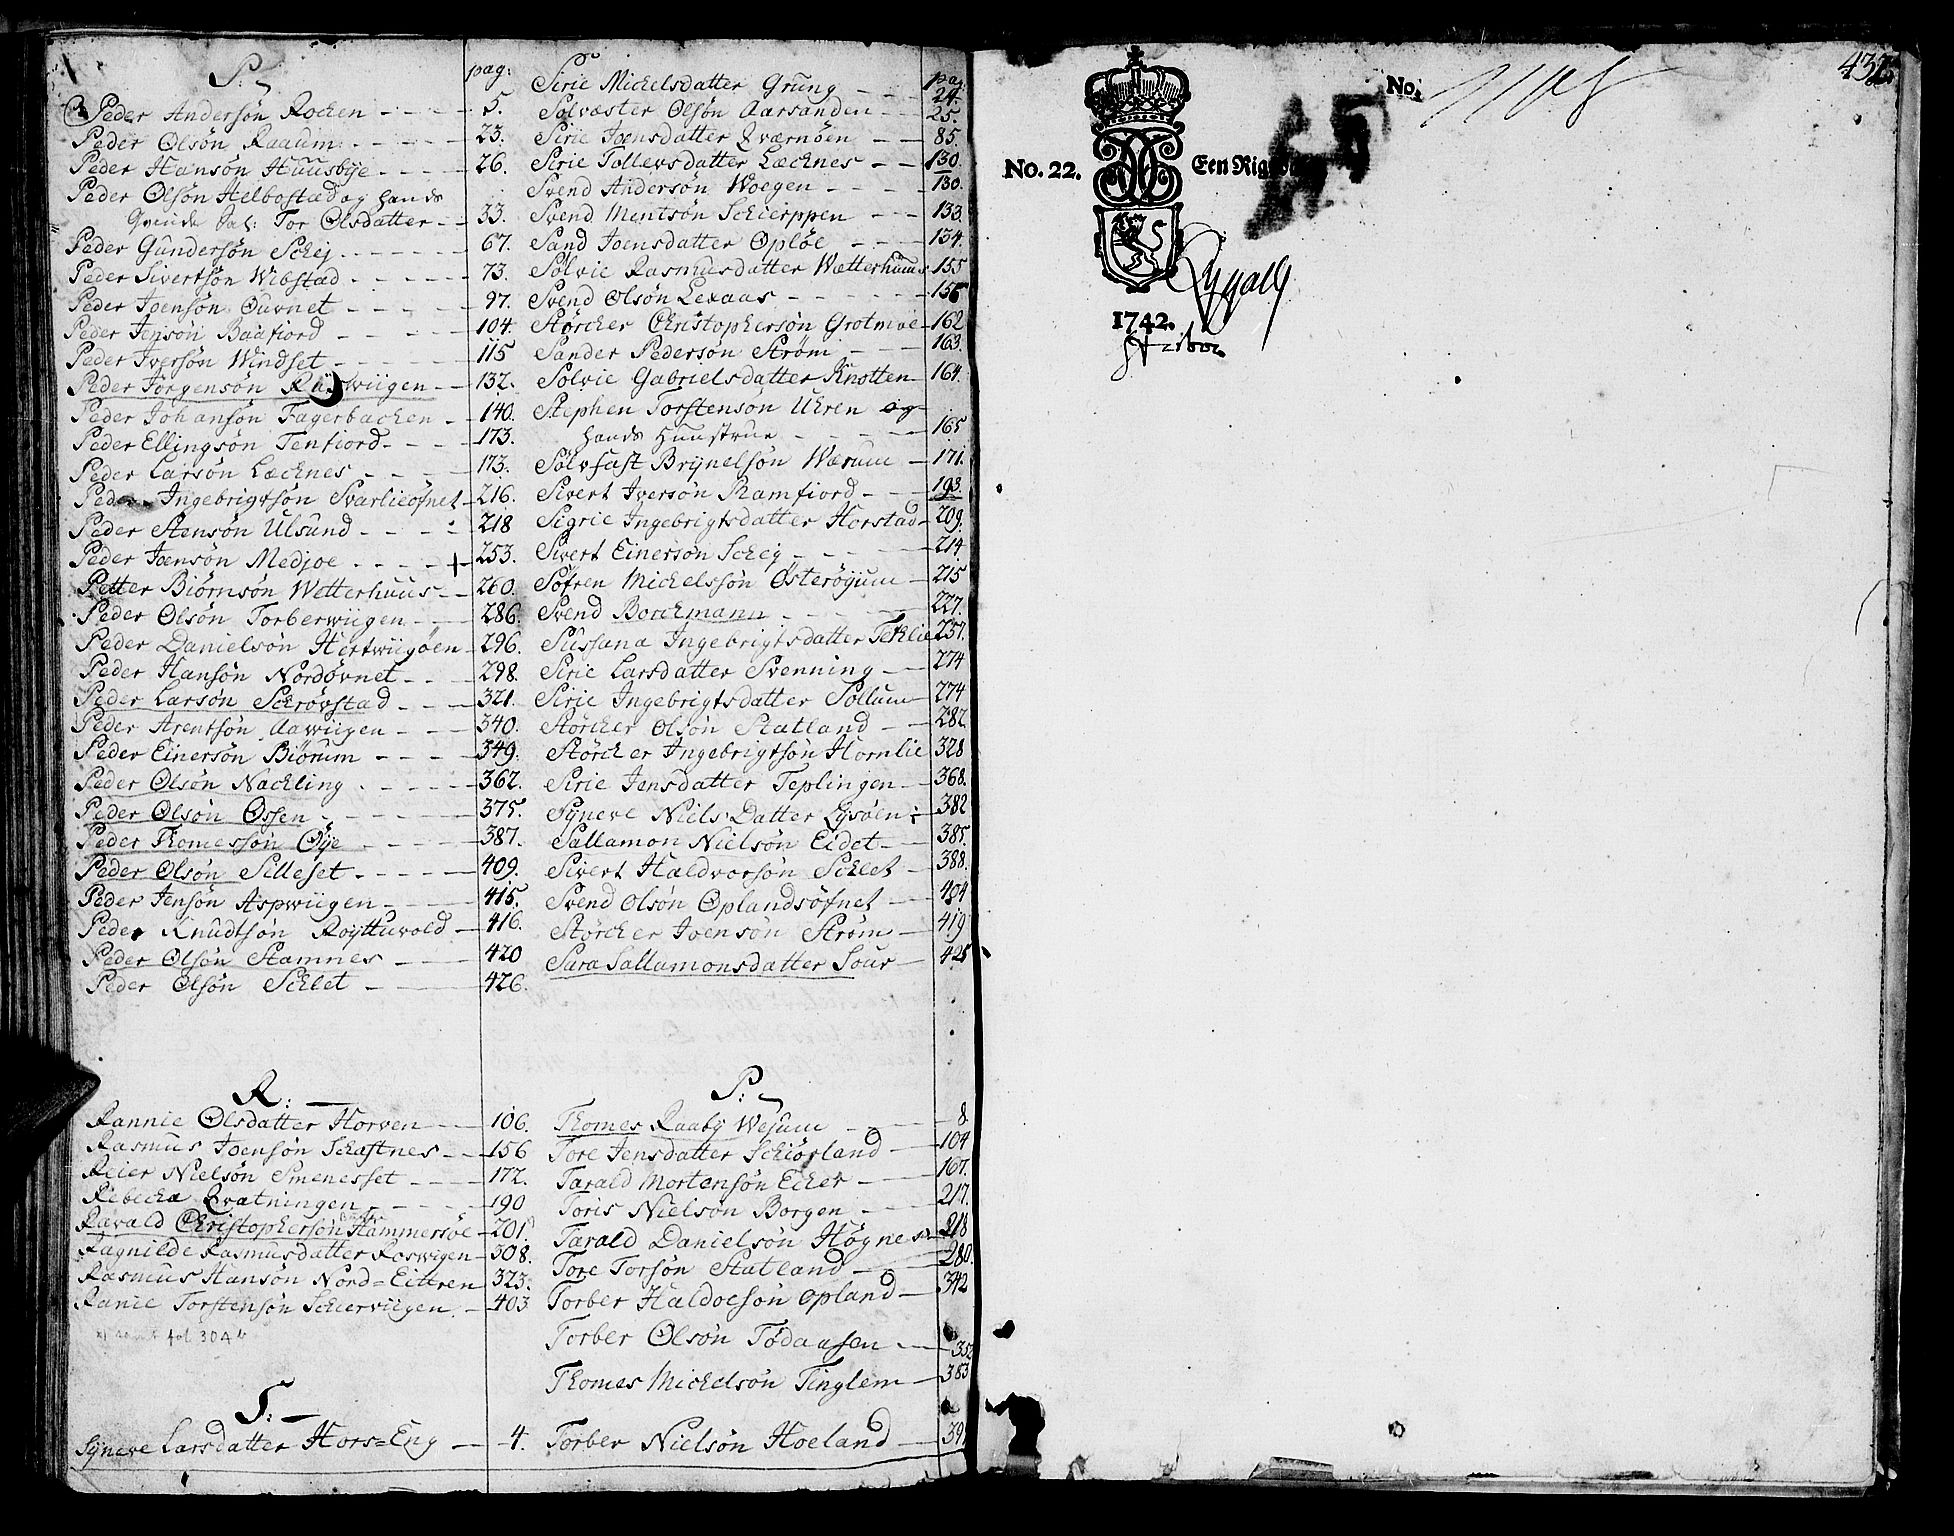 P:
pag:
Peder Andersøn Rochen - - - - 5.
Peder Olsøn Raaum - - - - 23.
Peder Hansøn Huusbye - - - - 26.
Peder Olsøn Helbostad og hands
Qvinde Sal: Tor Olsdatter - - 33.
Peder Gundersøn Schej - - - - 67.
Peder Sivertsøn Wibstad - - - - 73.
Peder Joensøn Duvnet - - - - 97.
Peder Jensøn Baafiord - - - - 104.
Peder Iversøn Windset - - - - 115
Peder Jørgensøn Raswiigen - - 132.
Peder Johansøn Fagerbachen - - 140.
Peder Ellingsøn Tenfiord - - - 173.
Peder Larsøn Læcknes - - - 173.
Peder Ingebrigtsøn Svarlieøfnet - 216.
Peder Stensøn Ulsund - - - - 218
Peder Joensøn Medjoe - - - - + 253.
Petter Biørnsøn Wetterhuus - - 260.
Peder Olsøn Torberwiigen - - 286.
Peder Danielsøn Hertwiigøen - 296.
Peder Hansøn Nordøvnet - - - 298.
Peder Larsøn Schrøvstad - - - 321.
Peder Arentsøn Aawiigen - - - 340.
Peder Einersøn Biørum - - - - 349.
Peder Olsøn Nachling - - - - 362.
Peder Olsøn Ossen - - - - 375.
Peder Thomessøn Øye - - - - 387.
Peder Olsøn Silleset - - - - 409.
Peder Jensøn Aspwiigen - - - 415.
Peder Knudtsøn Røyttuvold - - 416.
Peder Olsøn Stamnes - - - 420
Peder Olsøn Schlet - - - 426.
R: -
Rannie Olsdatter Horven - - 106.
Rasmus Joensøn Schaftnes - - 156
Reier Nielsøn Smenesset - - - 172.
Rebecha Qvatningen - - - 190
Ravald Christophersøn Hammersøe - 201.
Ragnilde Rasmusdatter Roswigen - 308.
Rasmus Hansøn Nord=Eittren 323.
Ranie Torstensøn Schierviigen - 403
fol 304 b
S: -
Syneve Larsdatter Hors=Eng - - 4.
pag.
Sirie Michelsdatter Grung - - 24.
Solvæster Olsøn Aarsanden - - 25.
Sirie Joensdatter Qværnøen - - 85.
Sirie Tollevsdatter Læcknes - - 130
Svend Andersøn Woegen - - - 130.
Svend Mentsøn Schierppen - - - 133.
Sand Joensdatter Opløe - - - 134.
Sølvie Rasmusdatter Wætterhuus 155
Svend Olsøn Lexaas - - - - 156
Størcher Christophersøn Grotmoe - 162
Sander Pedersøn Strøm - - - 163.
Solvie Gabrielsdatter Knotten - 164.
Stephen Torstensøn Uhren og
hands Huustrue - - - - 165
Sølvfast Brynelsøn Wærum - 171.
Sivert Iversøn Ramfiord - - - 193.
Sigrie Ingebrigtsdatter Horstad - 209.
Sivert Einersøn Schej - - - - 214
Søfren Michelsøn Østerøyum - 215
Svend Borchmann - - - - 227.
Sussana Ingebrigtsdatter Tetlie 257.
Sirie Larsdatter Svenning - - 274
Sirie Ingebrigtsdatter Sollum - 274
Størcher Olsøn Statland - - 282
Størcher Ingebrigtsøn Hornlie 328
Sirie Jensdatter Teplingen - - 368.
Syneve Niels Datter Lysøen - 382
Sallamon Nielsøn Eidet - - 385.
Sivert Haldvorsøn Schlet - 388.
Svend Olsøn Oplandsøfnet - - 404
Størcher Joensøn Strøm - - 419
Sara Sallamonsdatter Sour - 425
Thomes Raaby Wesum - - - 8
Tore Jensdatter Schiørland - - 104
Tarald Mortensøn Ecker - - 167.
Toris Nielsøn Borgen - - - 217.
Tarald Danielsøn Høgnes - 218
Tore Torsøn Statland - - 280.
Torber Haldoesøn Opland - 342
Torber Olsøn Tødaasen - - 352
Thomes Michelsøn Tinglem - 383
Torber Nielsøn Hoeland - 39
432
No.
No. 22.
1742.